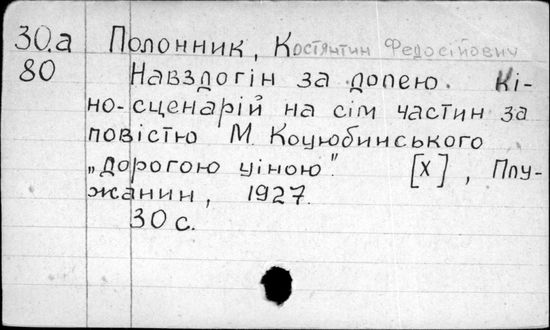 30.а Полонник, Костянтин Федосійович
80 Навздогін за долею. Кі-
но-сценарій на сім частин за
повістю М. Коцюбинського
„Дорогою ціною". [Х], Плу-
жанин, 1927.
30 с.